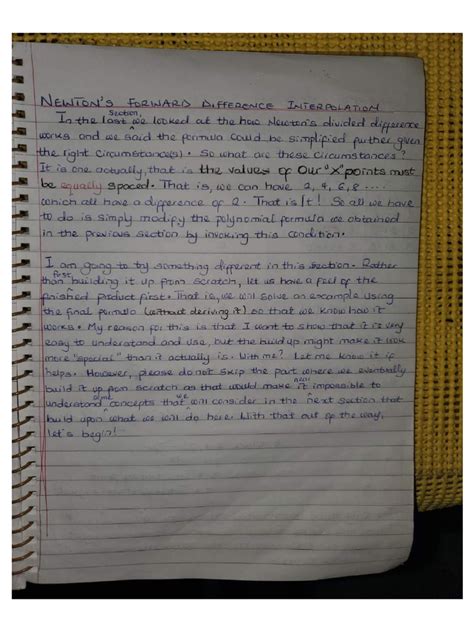 NEWTON'S FORWARD DIFFERENCE INTERPOLATION
In the last section, we looked at the how Newton's divided difference
works and we said the formula could be simplified further given
the right circumstance(s). So what are these circumstances?
It is one actually, that is the values of our "X" points must
be equally spaced. That is, we can have 2, 4, 6, 8 ....
which all have a difference of 2. That is it! So all we have
to do is simply modify the polynomial formula we obtained
in the previous section by invoking this condition.
I am going to try something different in this section. Rather
than first, building it up from scratch, let us have a feel of the
finished product first. That is, we will solve an example using
the final formula (without deriving it) so that we know how it
works. My reason for this is that I want to show that it is very
easy to understand and use, but the build up might make it look
more "special" than it actually is. With me? Let me know if it
helps. However, please do not skip the part where we eventually
build it up from scratch as that would make it near impossible to
understand some concepts that we will consider in the next section that
build upon what we will do here. With that out of the way,
let's begin!